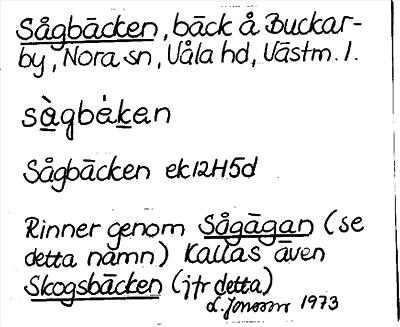 Sågbäcken, bäck å Buckar-
by, Nora sn, Våla hd, Västm. l.
sàgbȧkan
Sågbäcken ek 12H5d
Rinner genom Sågägan (se
detta namn) Kallas även
Skogsbäcken (jfr detta)
L. Jonsson 1973